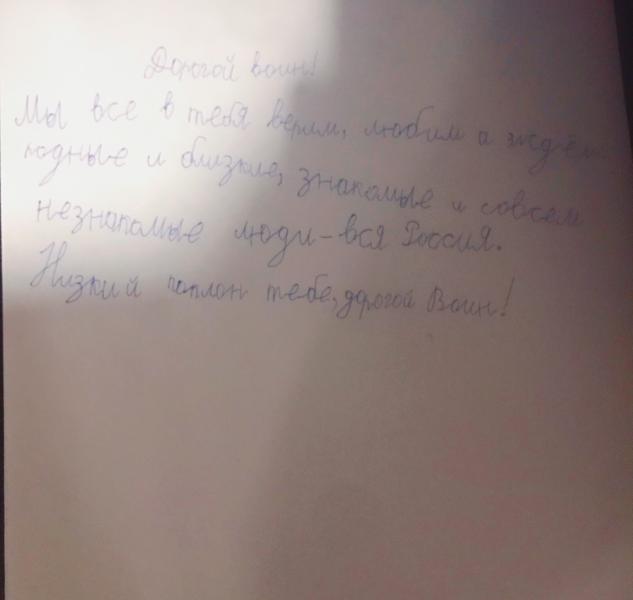 Дорогой воин!
Мы все в тебя верим, любим и ждём
родные и близкие, знакомые и совсем
незнакомые люди - вся Россия.
Низкий поклон тебе, дорогой Воин!